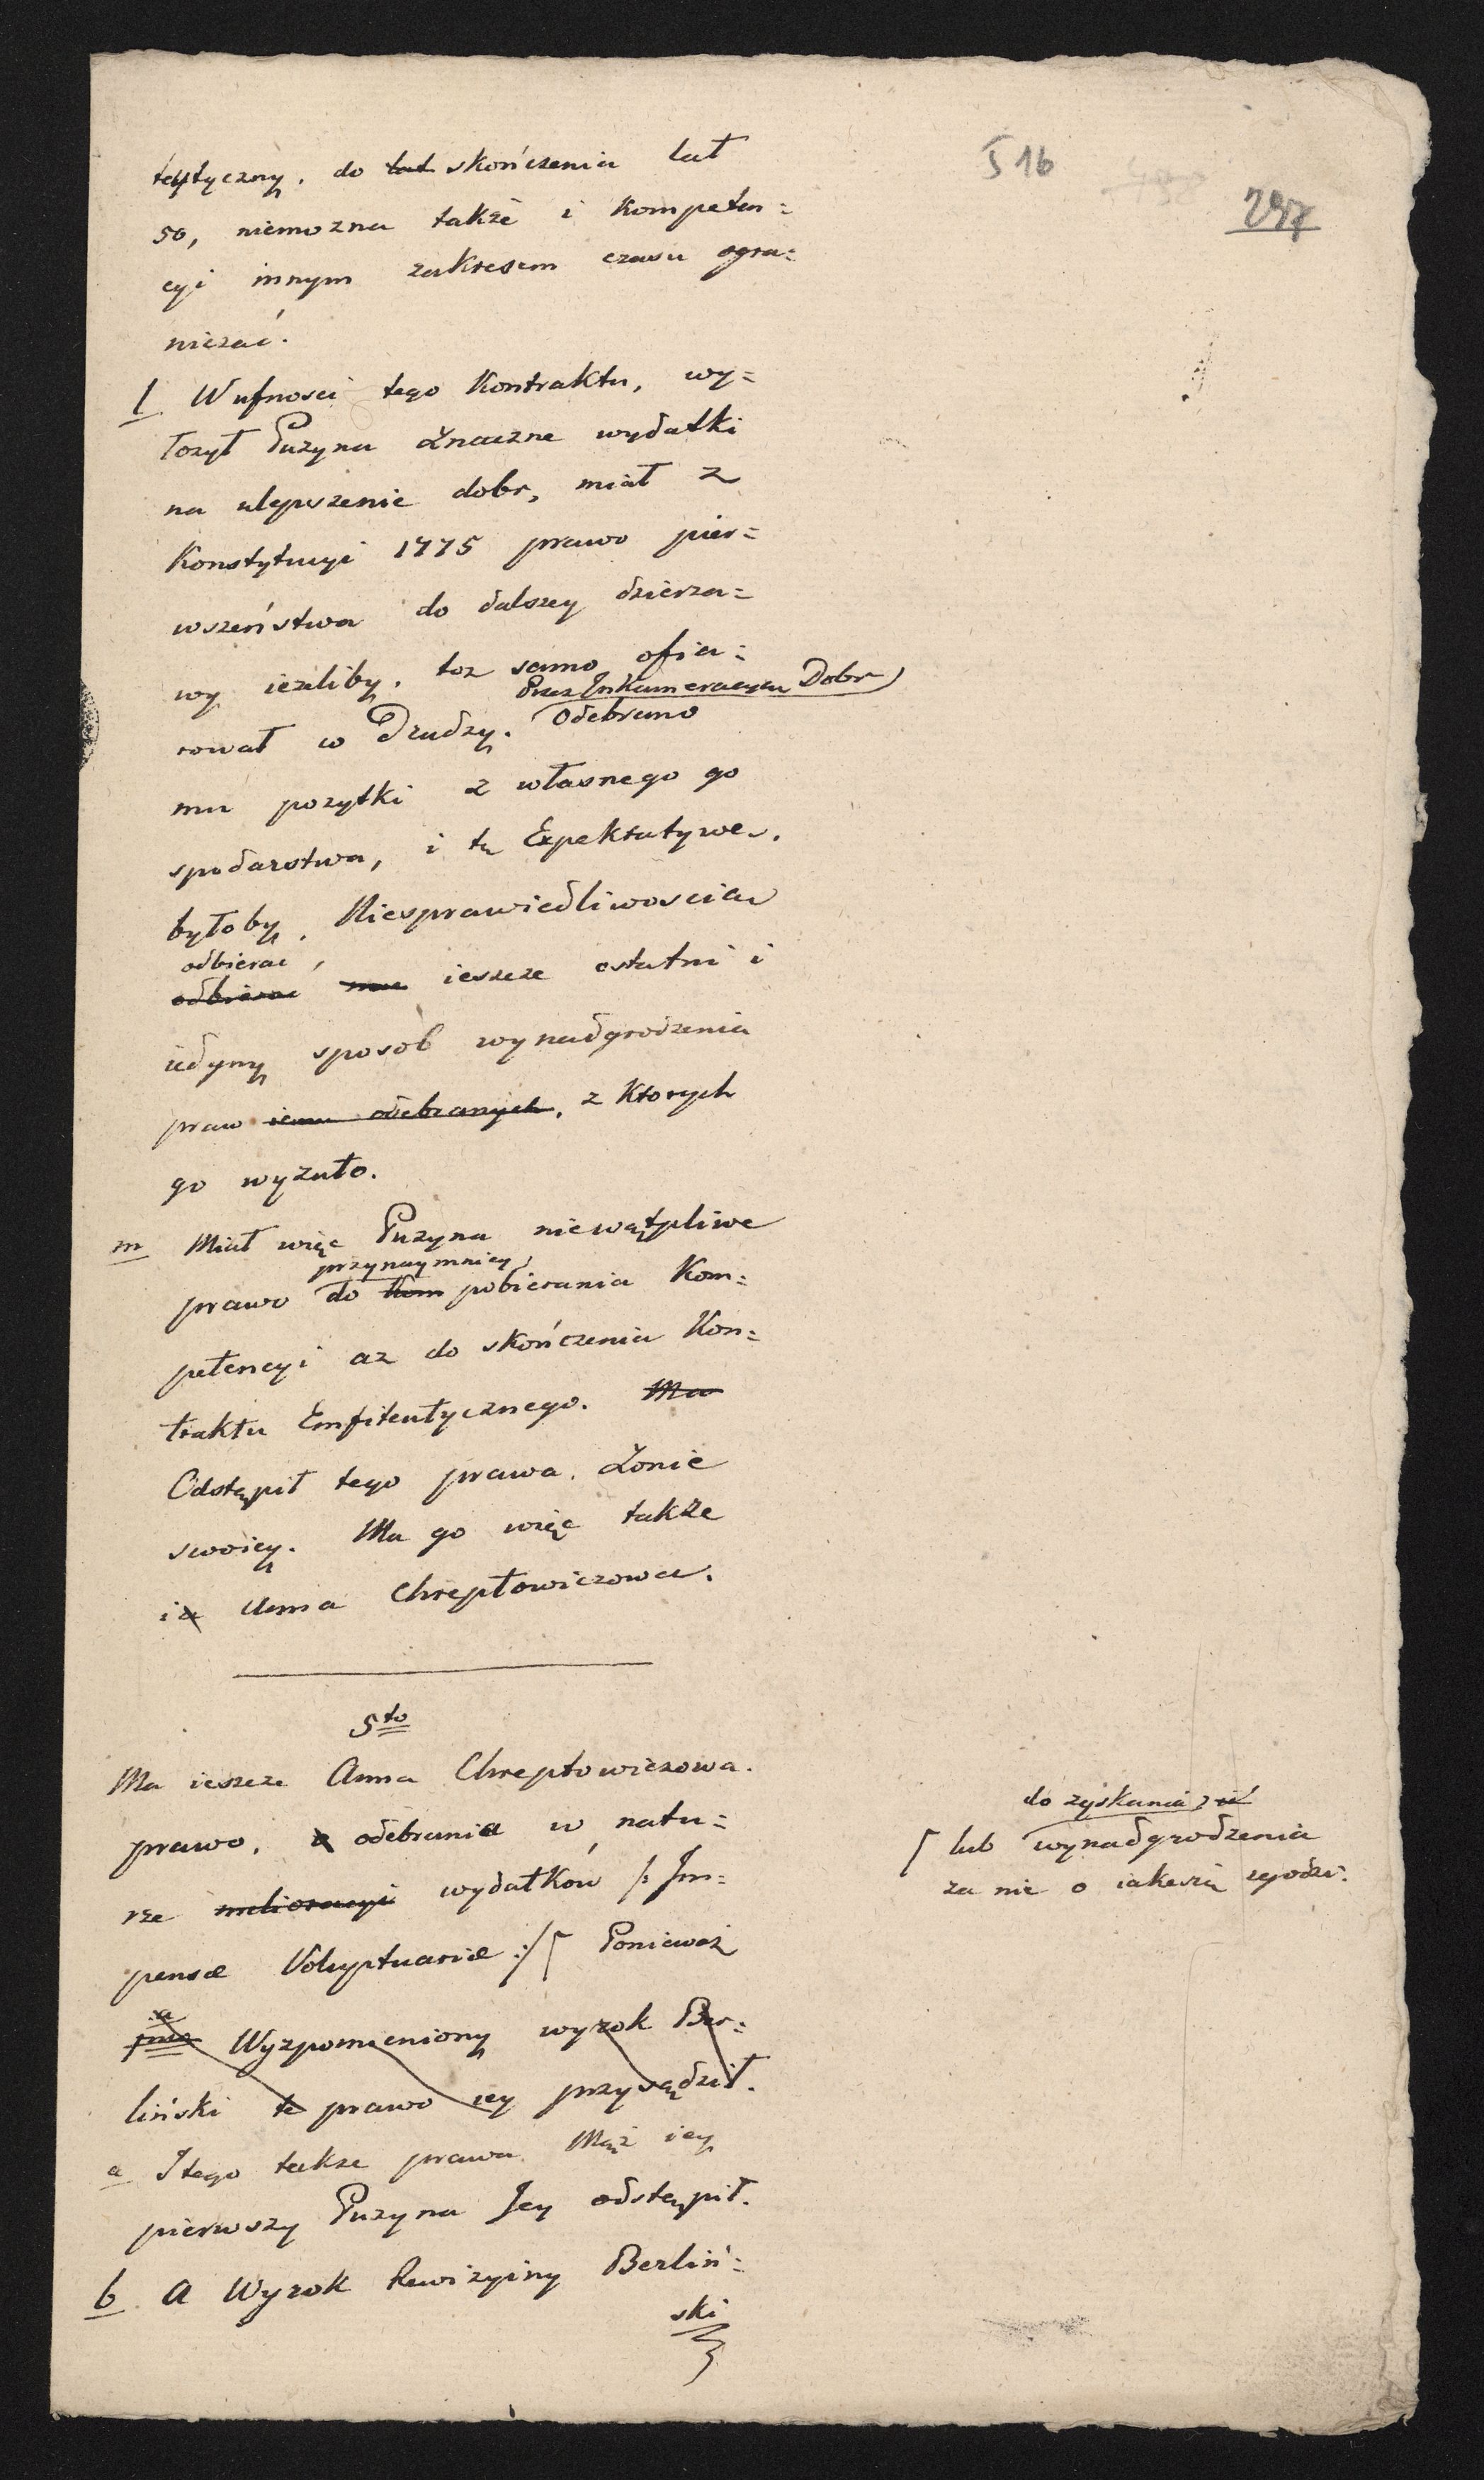 516
297
teutyczny, do lat skończenia lat
50, niemozna także i Kompeten=
cyi innym zakresem czasu ogra=
niczać.
l Wufnosci tego Kontraktu, wy=
łozył Puzyna znaczne wydatki
na ulepszenie dobr, miał z
Konstytucyi 1775 prawo pier=
wszeństwa do dalszey dzierza=
wy iezeliby, toz samo ofia=
Przez Inkameracyą Dobr
rował co Drudzy. Odebrano
mu pozytki z własnego go
spodarstwa, i tę Expektatywę.
byłoby, Niesprawiedliwoscią
odbierać,
odbierać mu ieszcze ostatni i
iedyny sposób wynadgrodzenia
praw iemu odebranych, z Ktorych
go wyzuto.
m Miał więc Puzyna niewątpliwe
przynaymniey
prawo do Kom pobierania Kom=
petencyi az do skończenia Kon=
traktu Emfiteutycznego. Ma
Odstąpił tego prawa, Zonie
swoiey. Ma go więc także
ia Anna Chreptowiczowa.
5to
Ma ieszcze Anna Chreptowiczowa.
prawo, a odebrania w natu=
rze melioracyi wydatków /: Im=
pensæ Voluptuariæ :/ ⌈ Ponieważ
do zyskania
⌈ lub wynadgrodzenia
za nie o iakeśią
a
Wyzpomieniony wyrok Ber=
liński te prawo iey przysądził.
a I tego takze prawa, Mąż iey
pierwszy Puzyna Jey odstąpił.
b A Wyrok Rewizyiny Berliń=
ski